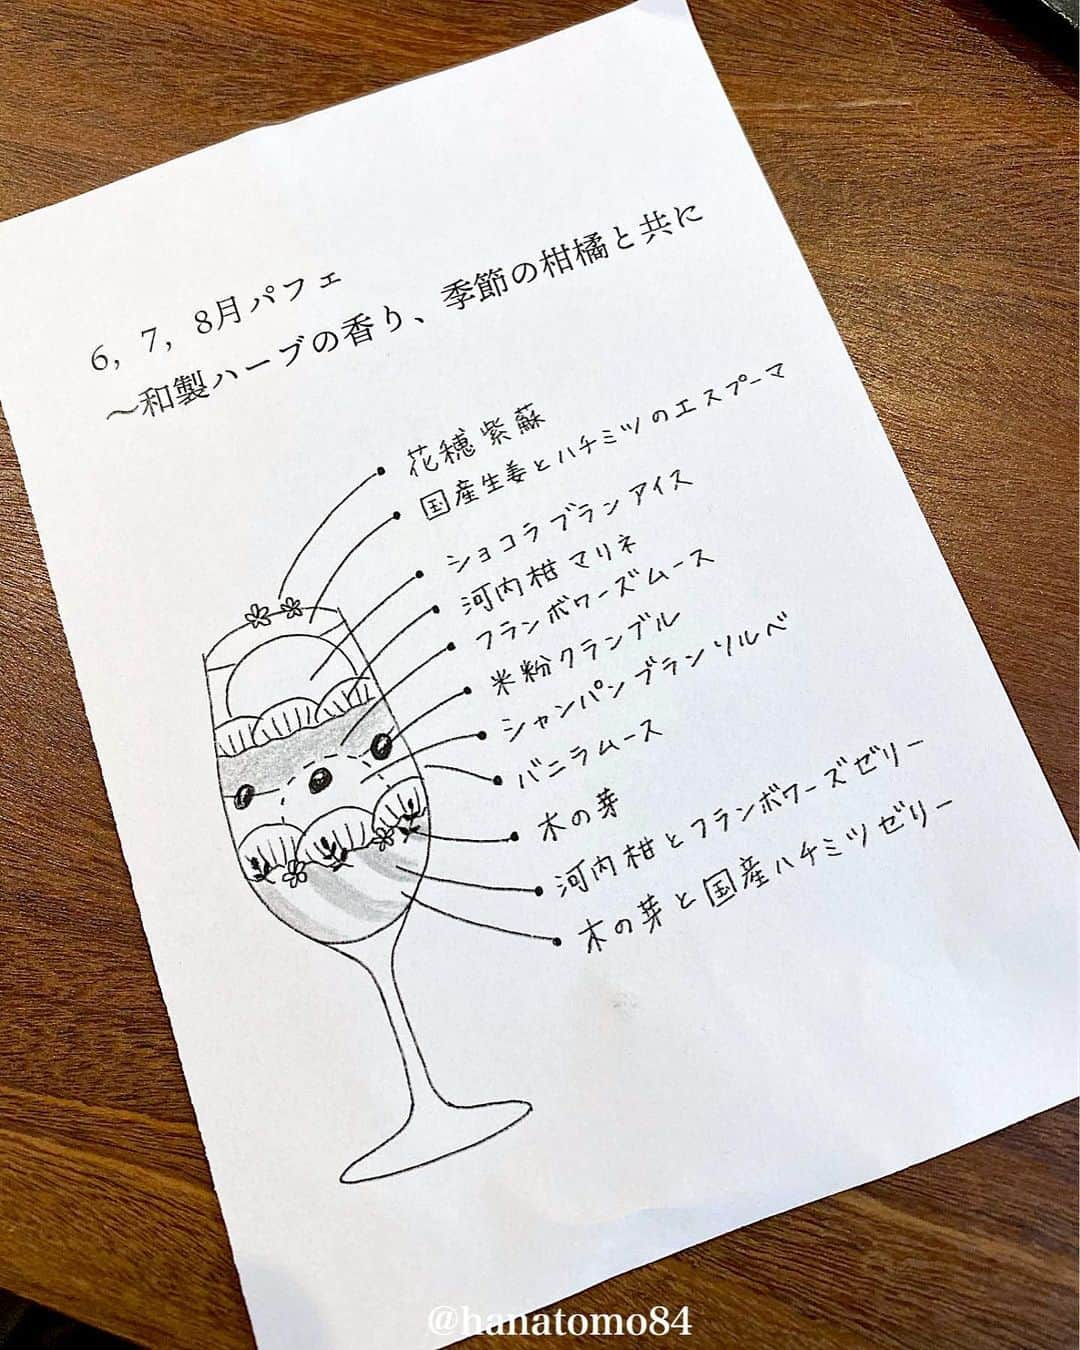 6, 7, 8月パフェ
～和製ハーブの香り、季節の柑橘と共に
花穂紫蘇
国産生姜とハチミツのエスプーマ
ショコラブランアイス
河内柑マリネ
フランボワーズムース
米粉クランブル
シャンパンブランソルベ
バニラムース
木の芽
河内柑とフランボワーズゼリー
木の芽と国産ハチミツゼリー
@hanatomo84